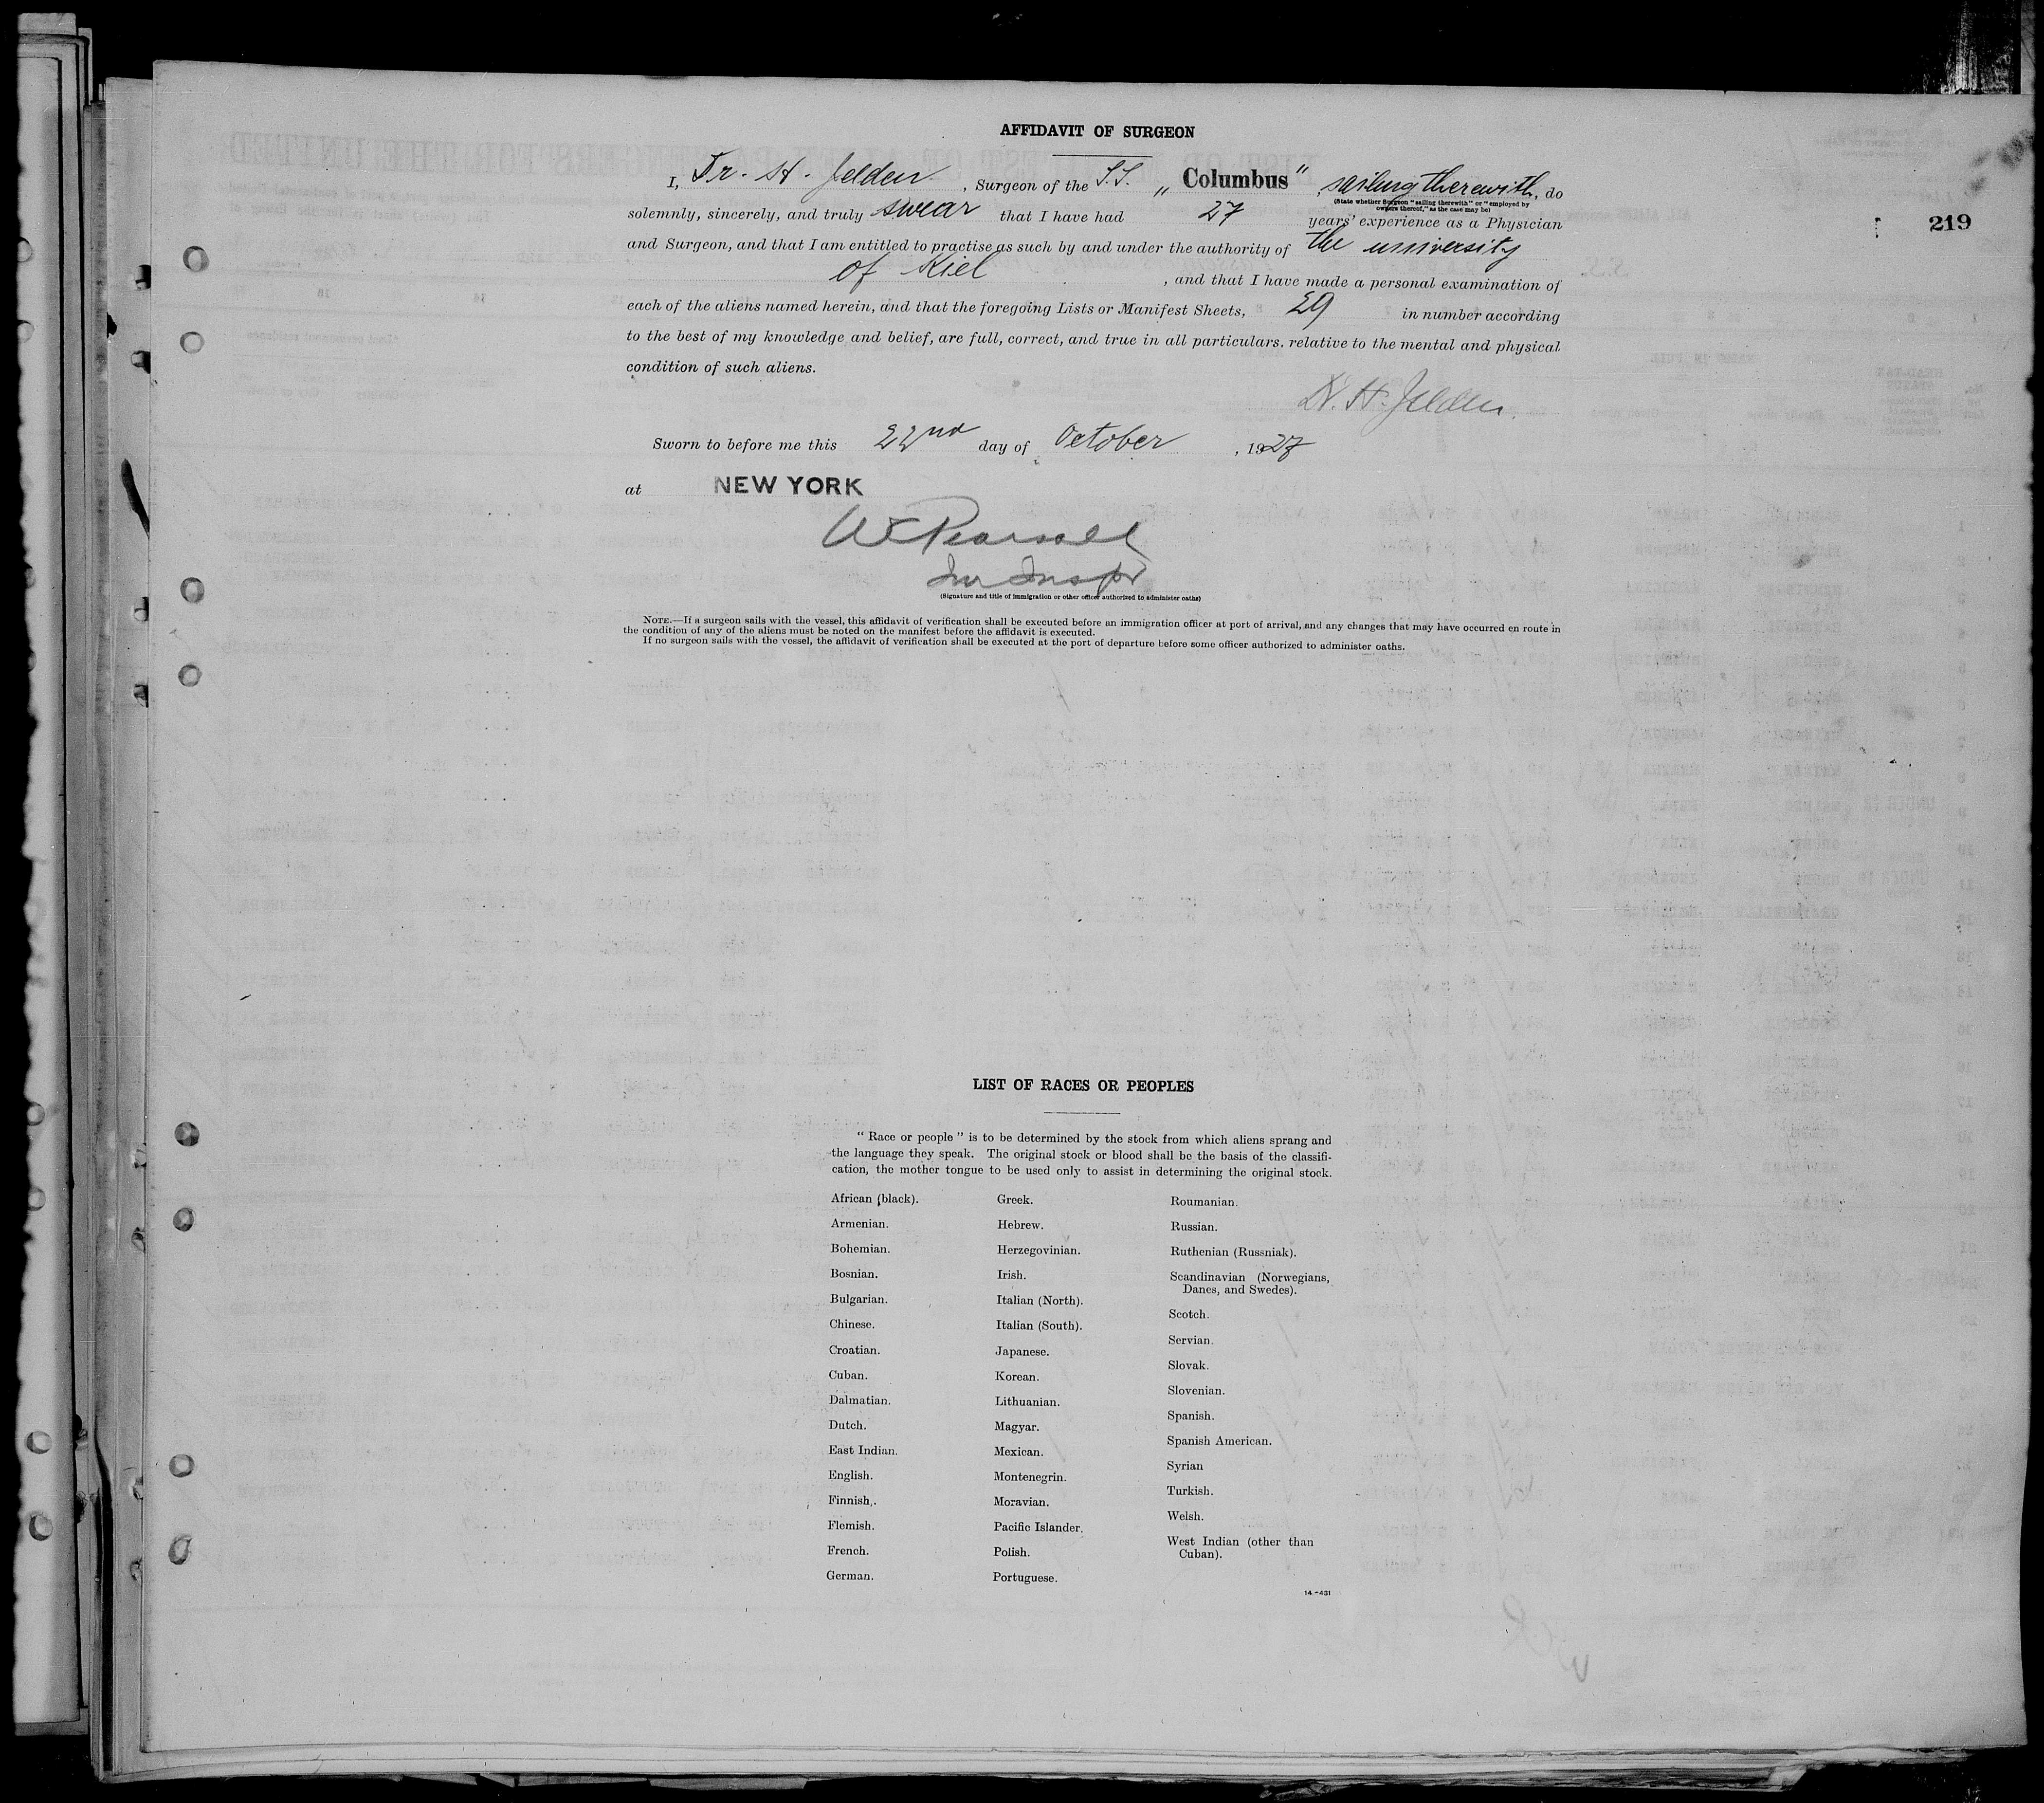 AFFIDAVIT OF SURGEON
I, Dr. H. Jelden, Surgeon of the S.S. „Columbus", sailing therewith, do
(State whether Surgeon "sailing therewith" or "employed by
owners thereof," as the case may be)
solemnly, sincerely, and truly swear that I have had 27 years' experience as a Physician
219
and Surgeon, and that I am entitled to practise as such by and under the authority of the university
of Kiel, and that I have made a personal examination of
each of the aliens named herein, and that the foregoing Lists or Manifest Sheets, 29 in number according
to the best of my knowledge and belief, are full, correct, and true in all particulars. relative to the mental and physical
condition of such aliens.
Dr. H. Jelden.
Sworn to before me this 22nd day of October, 1927
at NEW YORK
WE Pearsall
Im Inspr
(Signature and title of immigration or other officer authorized to administer oaths)
NOTE.—If a surgeon sails with the vessel, this affidavit of verification shall be executed before an immigration officer at port of arrival, and any changes that may have occurred en route in
the condition of any of the aliens must be noted on the manifest before the affidavit is executed.
If no surgeon sails with the vessel, the affidavit of verification shall be executed at the port of departure before some officer authorized to administer oaths.
LIST OF RACES OR PEOPLES
"Race or people" is to be determined by the stock from which aliens sprang and
the language they speak. The original stock or blood shall be the basis of the classifi-
cation, the mother tongue to be used only to assist in determining the original stock.
African (black).
Armenian.
Bohemian.
Bosnian.
Bulgarian.
Chinese.
Croatian.
Cuban.
Dalmatian.
Dutch.
East Indian.
English.
Finnish.
Flemish.
French.
German.
Greek.
Hebrew.
Herzegovinian.
Irish.
Italian (North).
Italian (South).
Japanese.
Korean.
Lithuanian.
Magyar.
Mexican.
Montenegrin.
Moravian.
Pacific Islander.
Polish.
Portuguese.
Roumanian.
Russian.
Ruthenian (Russniak).
Scandinavian (Norwegians,
Danes, and Swedes).
Scotch.
Servian.
Slovak.
Slovenian.
Spanish.
Spanish American.
Syrian
Turkish.
Welsh.
West Indian (other than
Cuban).
14—431